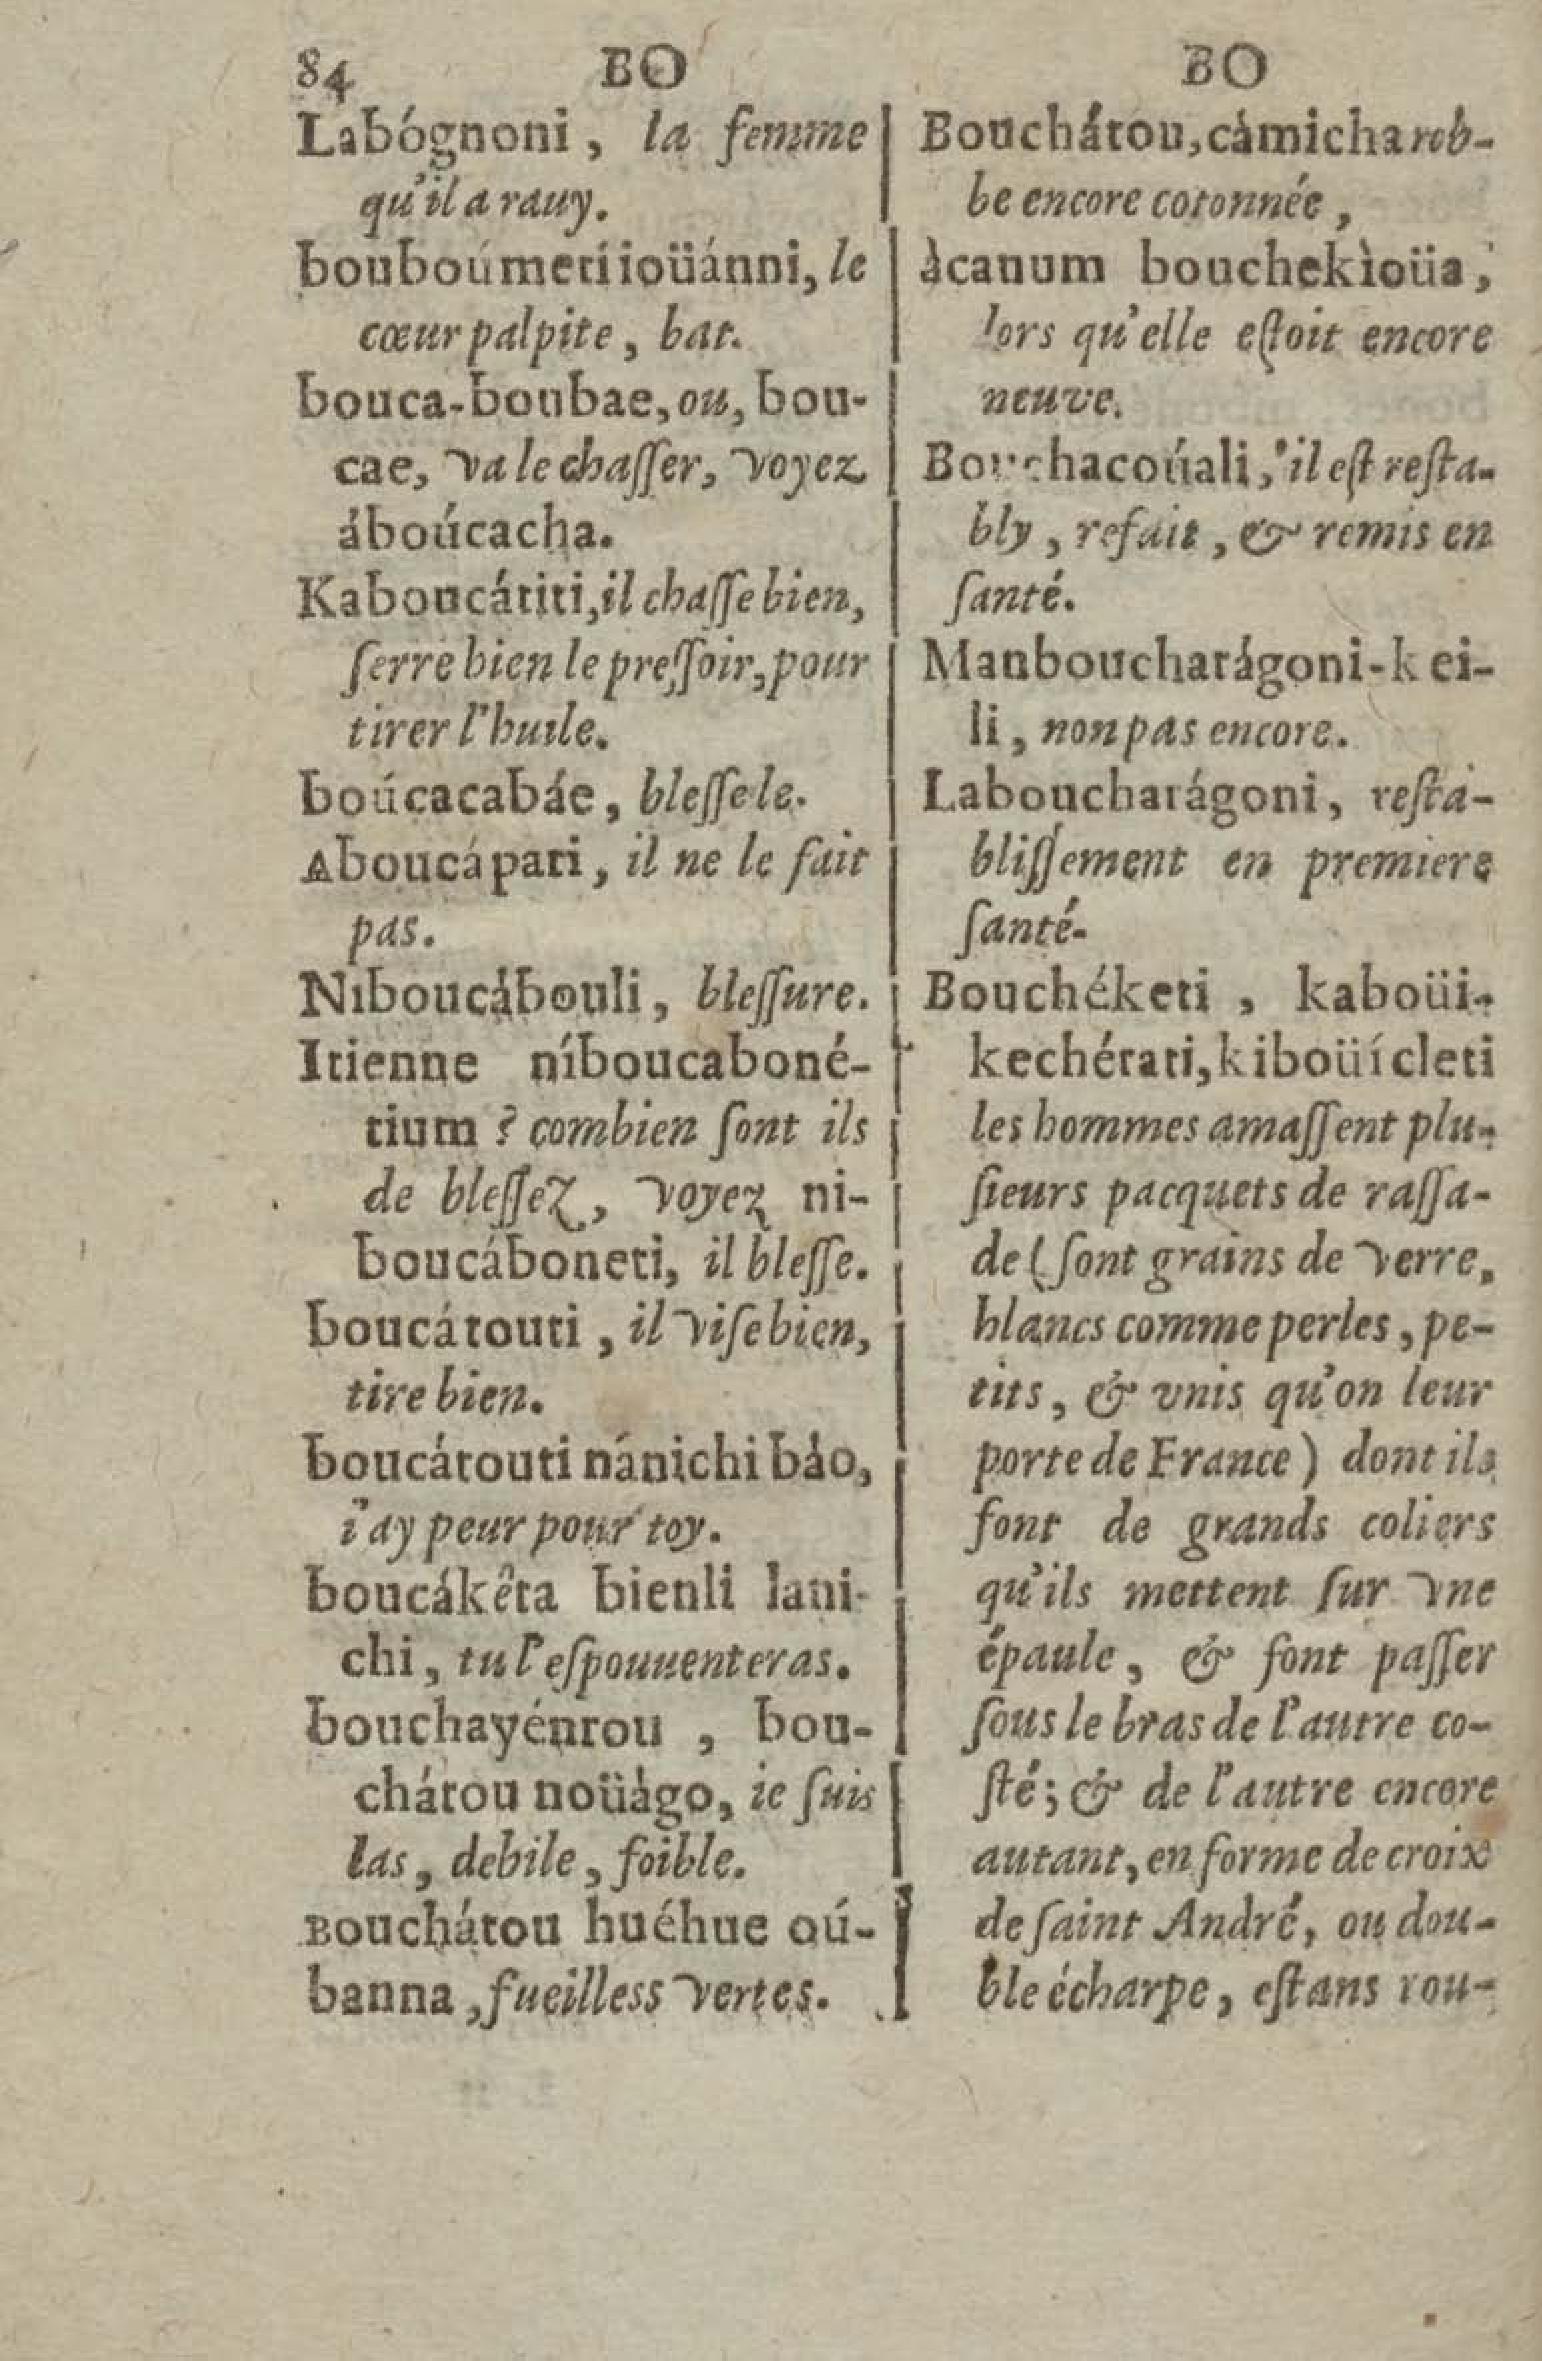 84 BO BO
Labógnoni, la femme
qu'il a rauy.
bouboúmetíioüánni, le
cœur palpite, bat.
bouca-boubae, ou, bou-
cae, va le chaſſer, voyez
áboúcacha.
Kaboucátiti, il chaſſe bien,
ſerre bien le preſſoir, pour
tirer l'huile.
boúcacabáe, bleſſe le.
Aboucápati, il ne le fait
pas.
Niboucábouli, bleſſure.
Itienne níboucaboné-
tium ? combien ſont ils
de bleſſez, voyez ni-
boucáboneti, il bleſſe.
boucátouti, il viſe bien,
tire bien.
boucátouti nánichi báo,
i'ay peur pour toy.
boucákêta bienli lani-
chi, tu l'eſpouuenteras.
bouchayénrou, bou-
chátou noüágo, ie ſuis
las, debile, foible.
Bouchátou huéhue oú-
banna, fueilless vertes.
Bouchátou, cámicha rob-
be encore cotonnée,
àcanum bouchekìoüa,
lors qu'elle eſtoit encore
neuve.
Bouchacoúali, il eſt reſta-
bly, refait, & remis en
ſanté.
Manboucharágoni-kei-
li, non pas encore.
Laboucharágoni, reſta-
bliſſement en premiere
ſanté.
Bouchéketi, kaboüi-
kechérati, kiboüícleti
les hommes amaſſent plu-
ſieurs pacquets de raſſa-
de (ſont grains de verre,
blancs comme perles, pe-
tits, & vnis qu'on leur
porte de France) dont ils
font de grands coliers
qu'ils mettent ſur vne
épaule, & font paſſer
ſous le bras de l'autre co-
ſté; & de l'autre encore
autant, en forme de croix
de ſaint André, ou dou-
ble écharpe, eſtans rou-